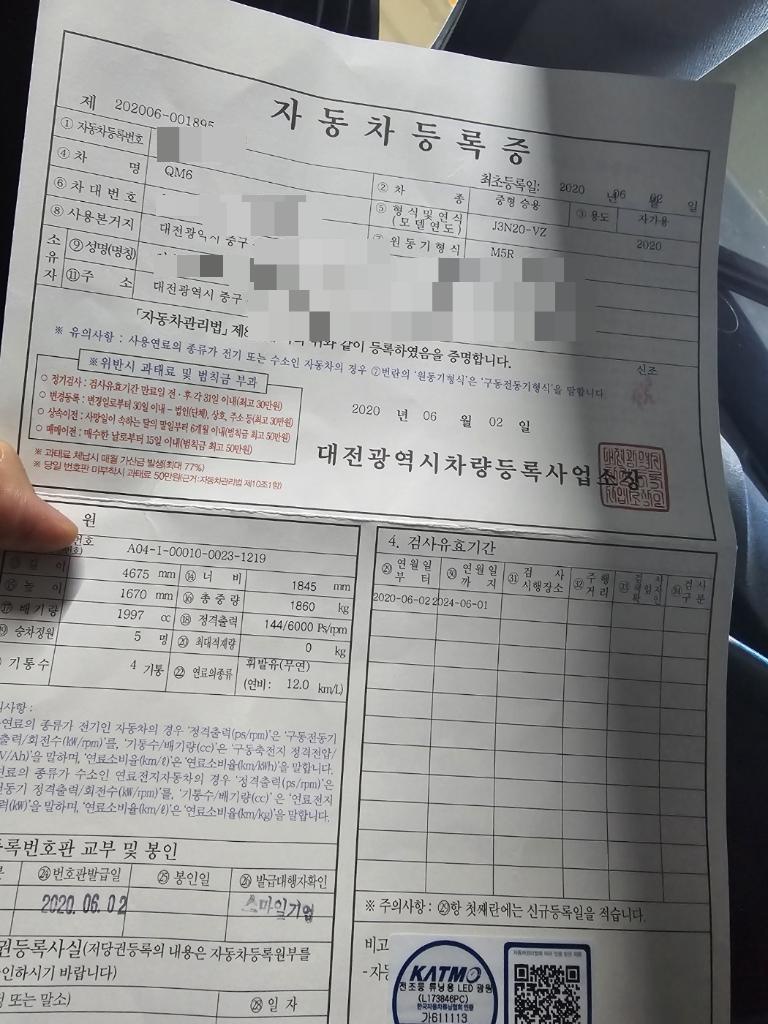 자동차등록증
제 202006-001895
최초등록일: 2020 년 06 월 02 일
① 자동차등록번호 ② 차 종 중형 승용 ③ 용도 자가용
④ 차 명 QM6 ⑤ 형식 및 연식 (모델연도) J3N20-VZ 2020
⑥ 차대번호 ⑦ 원동기형식 M5R
⑧ 사용본거지 대전광역시 중구
소유자 ⑨ 성명(명칭)
⑪ 주 소 대전광역시 중구
「자동차관리법」 제8 같이 등록하였음을 증명합니다.
※ 유의사항 : 사용연료의 종류가 전기 또는 수소인 자동차의 경우 ⑦번란의 '원동기형식'은 '구동전동기형식'을 말합니다
신조
※위반시 과태료 및 범칙금 부과
○ 정기검사 : 검사유효기간 만료일 전·후 각 31일 이내(최고 30만원)
○ 변경등록 : 변경일로부터 30일 이내 - 법인(단체), 상호, 주소 등(최고 30만원)
○ 상속이전 : 사망일이 속하는 달의 말일부터 6개월 이내(범칙금 최고 50만원)
○ 매매이전 : 매수한 날로부터 15일 이내(범칙금 최고 50만원)
※ 과태료 체납시 매월 가산금 발생(최대 77%)
※ 당일 번호판 미부착시 과태료 50만원(근거:자동차관리법 제10조1항)
2020 년 06 월 02 일
대전광역시차량등록사업소장
원
번호 A04-1-00010-0023-1219
길 이 4675 mm ⑭ 너 비 1845 mm
⑮ 높 이 1670 mm ⑯ 총중량 1860 kg
⑰ 배기량 1997 cc ⑱ 정격출력 144/6000 Ps/rpm
⑲ 승차정원 5 명 ⑳ 최대적재량 0 kg
기통수 4 기통 ㉒ 연료의종류 휘발유(무연)
(연비: 12.0 km/L)
4. 검사유효기간
㉙ 연월일부터 ㉚ 연월일까지 ㉛ 검사시행장소 ㉜ 주행거리 ㉞ 검사구분
2020-06-02 2024-06-01
의사항 :
연료의 종류가 전기인 자동차의 경우 '정격출력(ps/rpm)'은 '구동전동기
출력/회전수(kW/rpm)'를, '기통수/배기량(cc)'은 '구동축전지 정격전압/
V/Ah)'을 말하며, '연료소비율(km/ℓ)'은 '연료소비율(km/kWh)'을 말합니다.
연료의 종류가 수소인 연료전지자동차의 경우 '정격출력(ps/rpm)'은
동기 정격출력/회전수(kW/rpm)'를, '기통수/배기량(cc)'은 '연료전지
력(kW)'을 말하며, '연료소비율(km/ℓ)'은 '연료소비율(km/kg)'을 말합니다.
등록번호판 교부 및 봉인
㉔ 번호판발급일 ㉕ 봉인일 ㉖ 발급대행자확인
2020. 06. 02 스마일기업
권등록사실(저당권등록의 내용은 자동차등록원부를
인하시기 바랍니다)
정 또는 말소) ㉘ 일 자
※ 주의사항 : ㉙항 첫째란에는 신규등록일을 적습니다.
비고
-자동
KATMO
전조등 튜닝용 LED 광원
(L173846PC)
한국자동차튜닝협회 인증
가611113